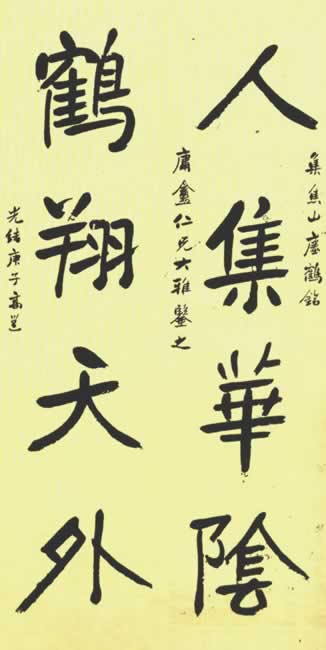 集焦山瘞鶴銘
人集華陰
庸盦仁兄大雅鑒之
鶴翔天外
光緒庚子高邕